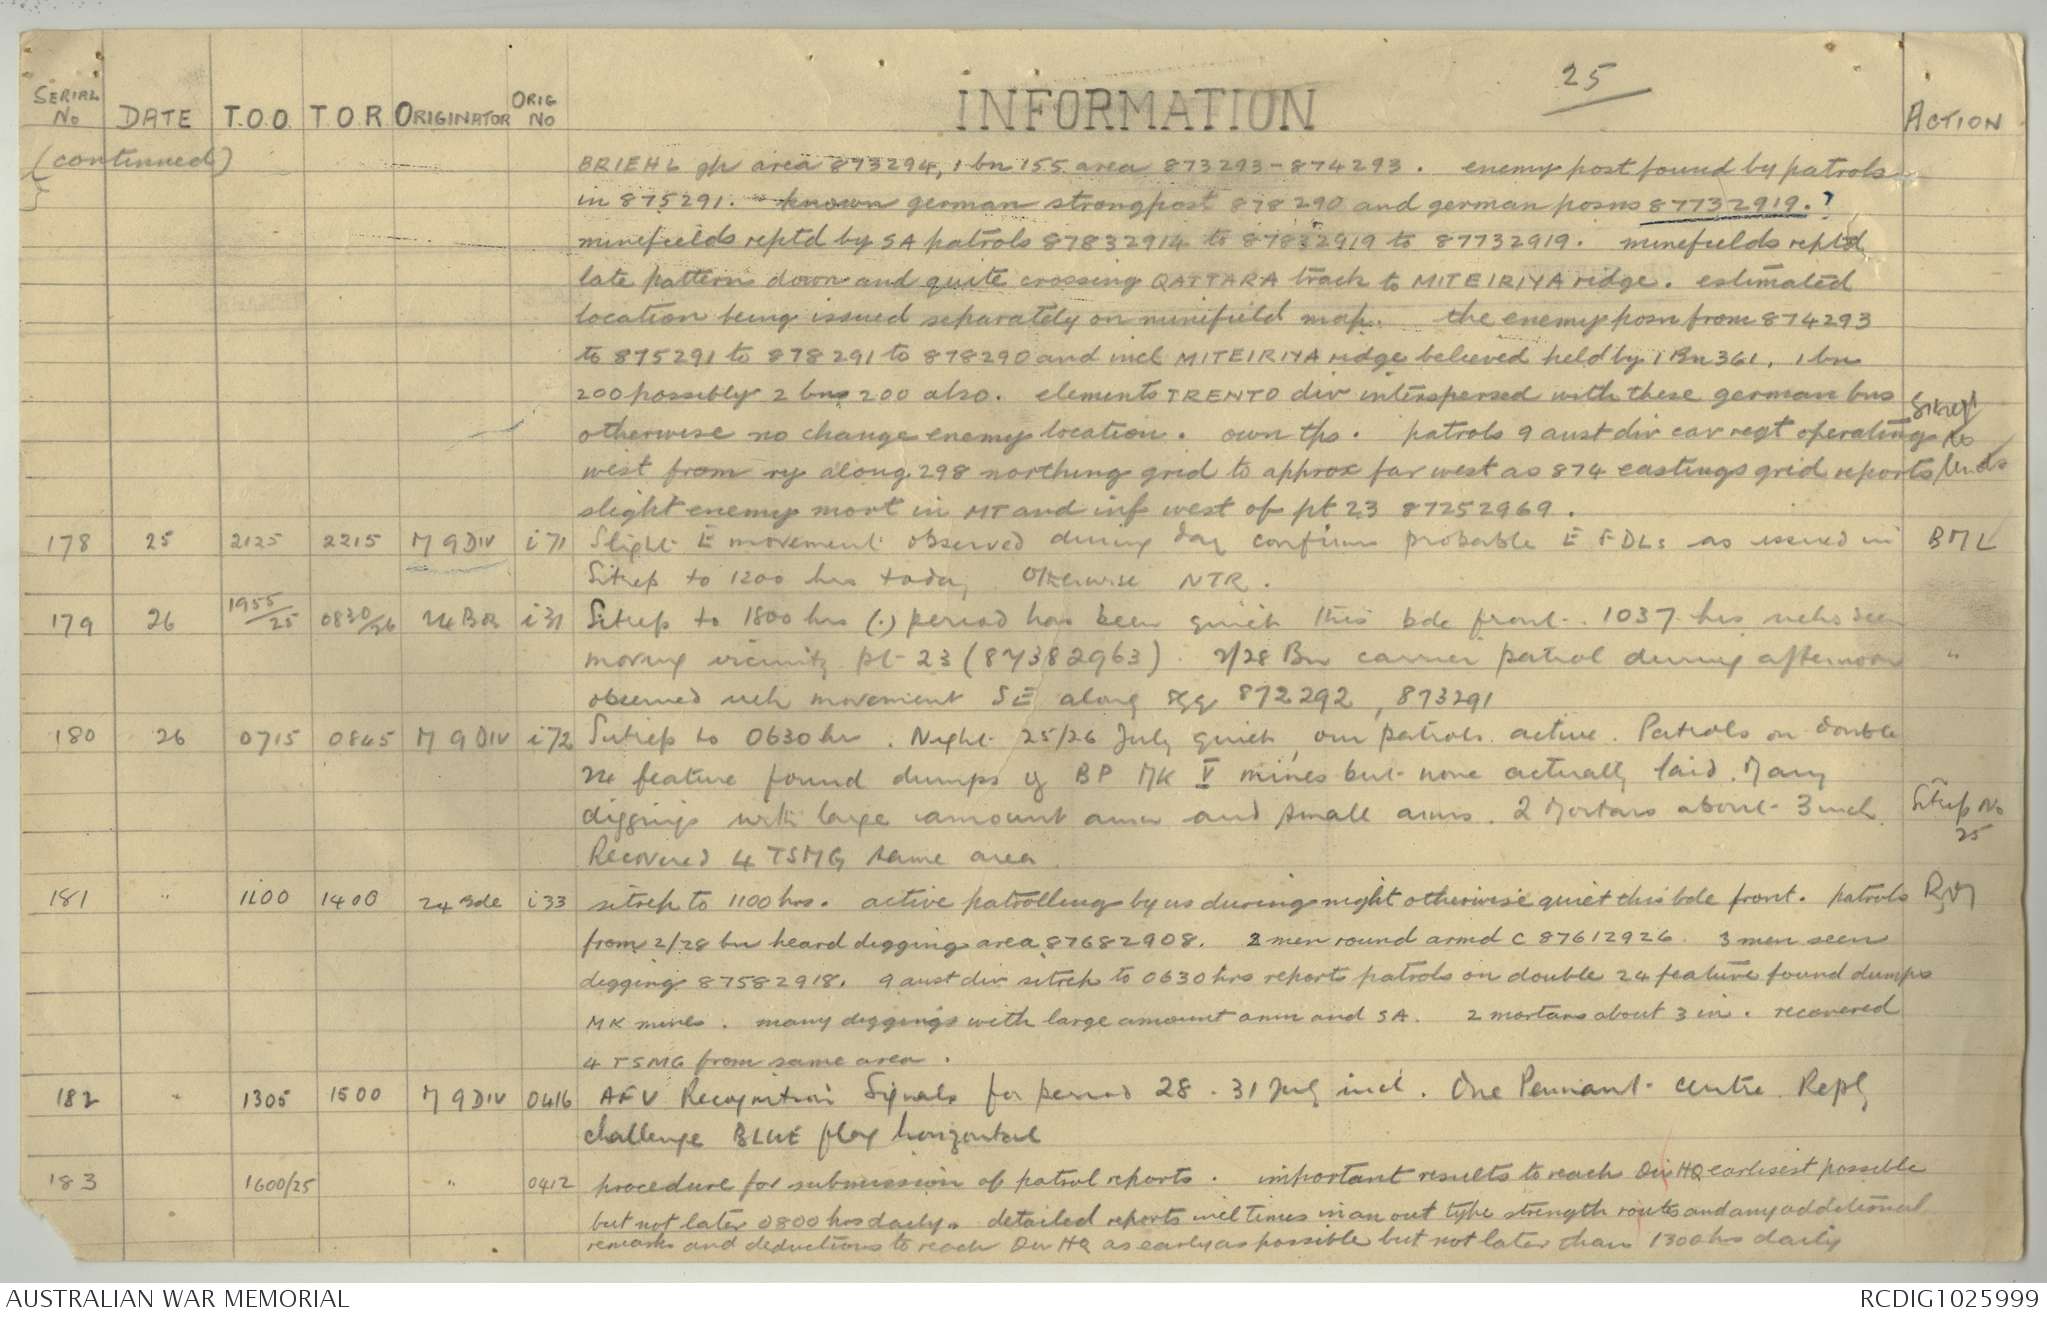 25
SERIAL No DATE T.O.O. T.O.R ORIGINATOR ORIG No INFORMATION ACTION
(continued)
BRIEHL gp area 873294, 1 bn 155 area 873293-874293. enemy post found by patrols
in 875291. known german strongpost 878290 and german posns 87732919. ?
minefields reptd by SA patrols 87832914 to 87832919 to 87732919. minefields reptd
late pattern down and quite crossing QATTARA track to MITEIRIYA ridge. estimated
location being issued separately on minefield map. the enemy posn from 874293
to 875291 to 878291 to 878290 and incl MITEIRIYA ridge believed held by 1 Bn 361, 1 bn
200 possibly 2 bns 200 also. elements TRENTO div interspersed with these german bns
otherwise no change enemy location. own tps. patrols 9 aust div cav regt operating Sitrep to
west from ry along 298 northing grid to approx far west as 874 eastings grid reports Units
slight enemy movt in MT and inf west of pt 23 87252969.
178 25 2125 2215 M 9 DIV i71 Slight E movement observed during day confirms probable E FDLs as issued in BML
Sitrep to 1200 hrs today. Otherwise NTR.
179 26 1955/25 0830/26 24 Bde i31 Sitrep to 1800 hrs (.) period has been quiet this bde front. 1037 hrs vehs seen
moving vicinity pt 23 (87382963). 2/28 Bn carrier patrol during afternoon "
observed veh movement SE along 872292, 873291
180 26 0715 0845 M 9 DIV i72 Sitrep to 0630 hr. Night 25/26 July quiet, our patrols active. Patrols on double
24 feature found dumps of BP MK V mines but none actually laid. Many
diggings with large amount amn and small arms. 2 Mortars about 3 inch. Sitrep No 25
Recovered 4 TSMG same area.
181 " 1100 1400 24 Bde i33 sitrep to 1100 hrs. active patrolling by us during night otherwise quiet this bde front. patrols
from 2/28 bn heard digging area 87682908. 2 men round armd C 87612926. 3 men seen
digging 87582918. 9 aust div sitrep to 0630 hrs reports patrols on double 24 feature found dumps
MK mines. many diggings with large amount amn and SA. 2 mortars about 3 in. recovered
4 TSMG from same area.
182 " 1305 1500 M 9 DIV 0416 AFV Recognition Signals for period 28 - 31 July incl. One Pennant centre. Reply
challenge BLUE flag horizontal
183 1600/25 " 0412 procedure for submission of patrol reports. important results to reach Div HQ earlisest possible
but not later 0800 hrs daily. detailed reports incl times in an out type strength routes and any additional
remarks and deductions to reach Div HQ as early as possible but not later than 1300 hrs daily
AUSTRALIAN WAR MEMORIAL RCDIG1025999